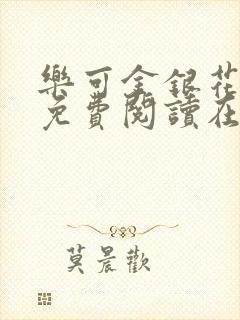 樂可金銀花
免費閱讀在
莫晨歡